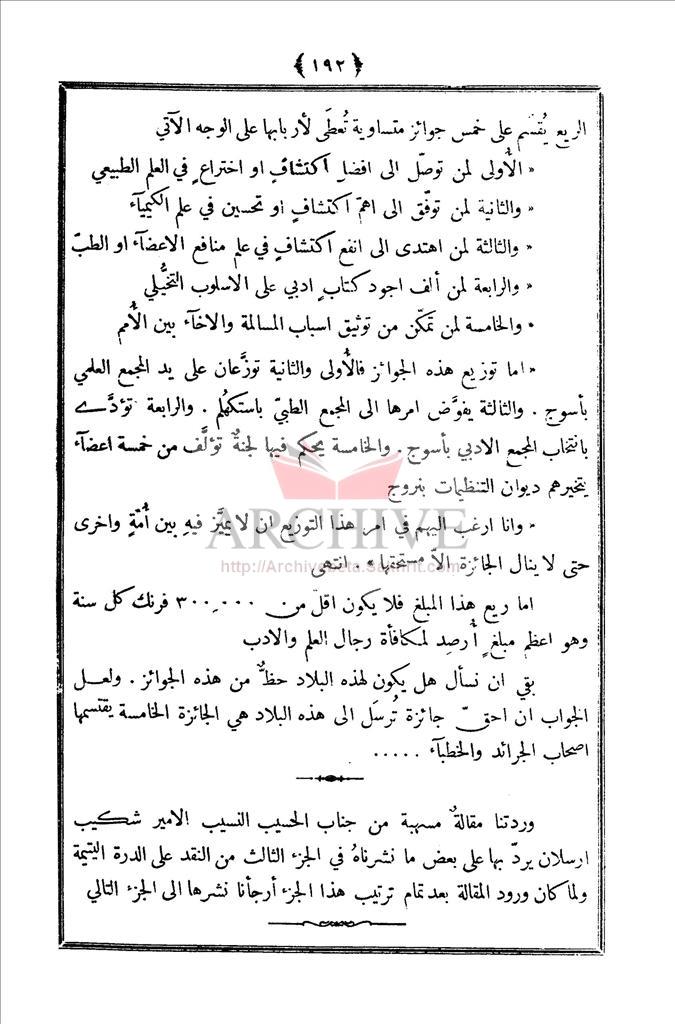 ﴿ ١٩٢ ﴾
الريع يُقسَّم على خمس جوائز متساوية تُعطَى لأربابها على الوجه الآتي
« الأُولى لمن توصّل الى افضل اكتشافٍ او اختراعٍ في العلم الطبيعي
« والثانية لمن توفّق الى اهمّ اكتشافٍ او تحسين في علم الكيمياء
« والثالثة لمن اهتدى الى انفع اكتشافٍ في علم منافع الاعضاء او الطبّ
« والرابعة لمن ألف اجود كتابٍ ادبي على الاسلوب التخيُّلي
« والخامسة لمن تمكّن من توثيق اسباب المسالمة والاخآء بين الأُمم
« اما توزيع هذه الجوائز فالأُولى والثانية توزَّعان على يد المجمع العلمي
بأسوج . والثالثة يفوَّض امرها الى المجمع الطبيّ باستكهُلم . والرابعة تؤدَّى
بانتخاب المجمع الادبي بأسوج . والخامسة يحكم فيها لجنةٌ تؤلَّف من خمسة اعضآء
يتخيرهم ديوان التنظيمات بنروج
« وانا ارغب اليهم في امر هذا التوزيع ان لا يميَّز فيهِ بين أُمّةٍ واخرى
حتى لا ينال الجائزة الاّ مستحقها » . انتهى
ARCHIVE
http://Archivebeta.Sakhrit.com
اما ريع هذا المبلغ فلا يكون اقلّ من ٣٠٠٬٠٠٠ فرنك كل سنة
وهو اعظم مبلغٍ أُرصِد لمكافأة رجال العلم والادب
بقي ان نسأل هل يكون لهذه البلاد حظٌّ من هذه الجوائز . ولعل
الجواب ان احقّ جائزة تُرسَل الى هذه البلاد هي الجائزة الخامسة يقتسمها
اصحاب الجرائد والخطبآء .....
وردتنا مقالةٌ مسهبة من جناب الحسيب النسيب الامير شكيب
ارسلان يردّ بها على بعض ما نشرناهُ في الجزء الثالث من النقد على الدرة اليتيمة
ولما كان ورود المقالة بعد تمام ترتيب هذا الجزء أرجأنا نشرها الى الجزء التالي